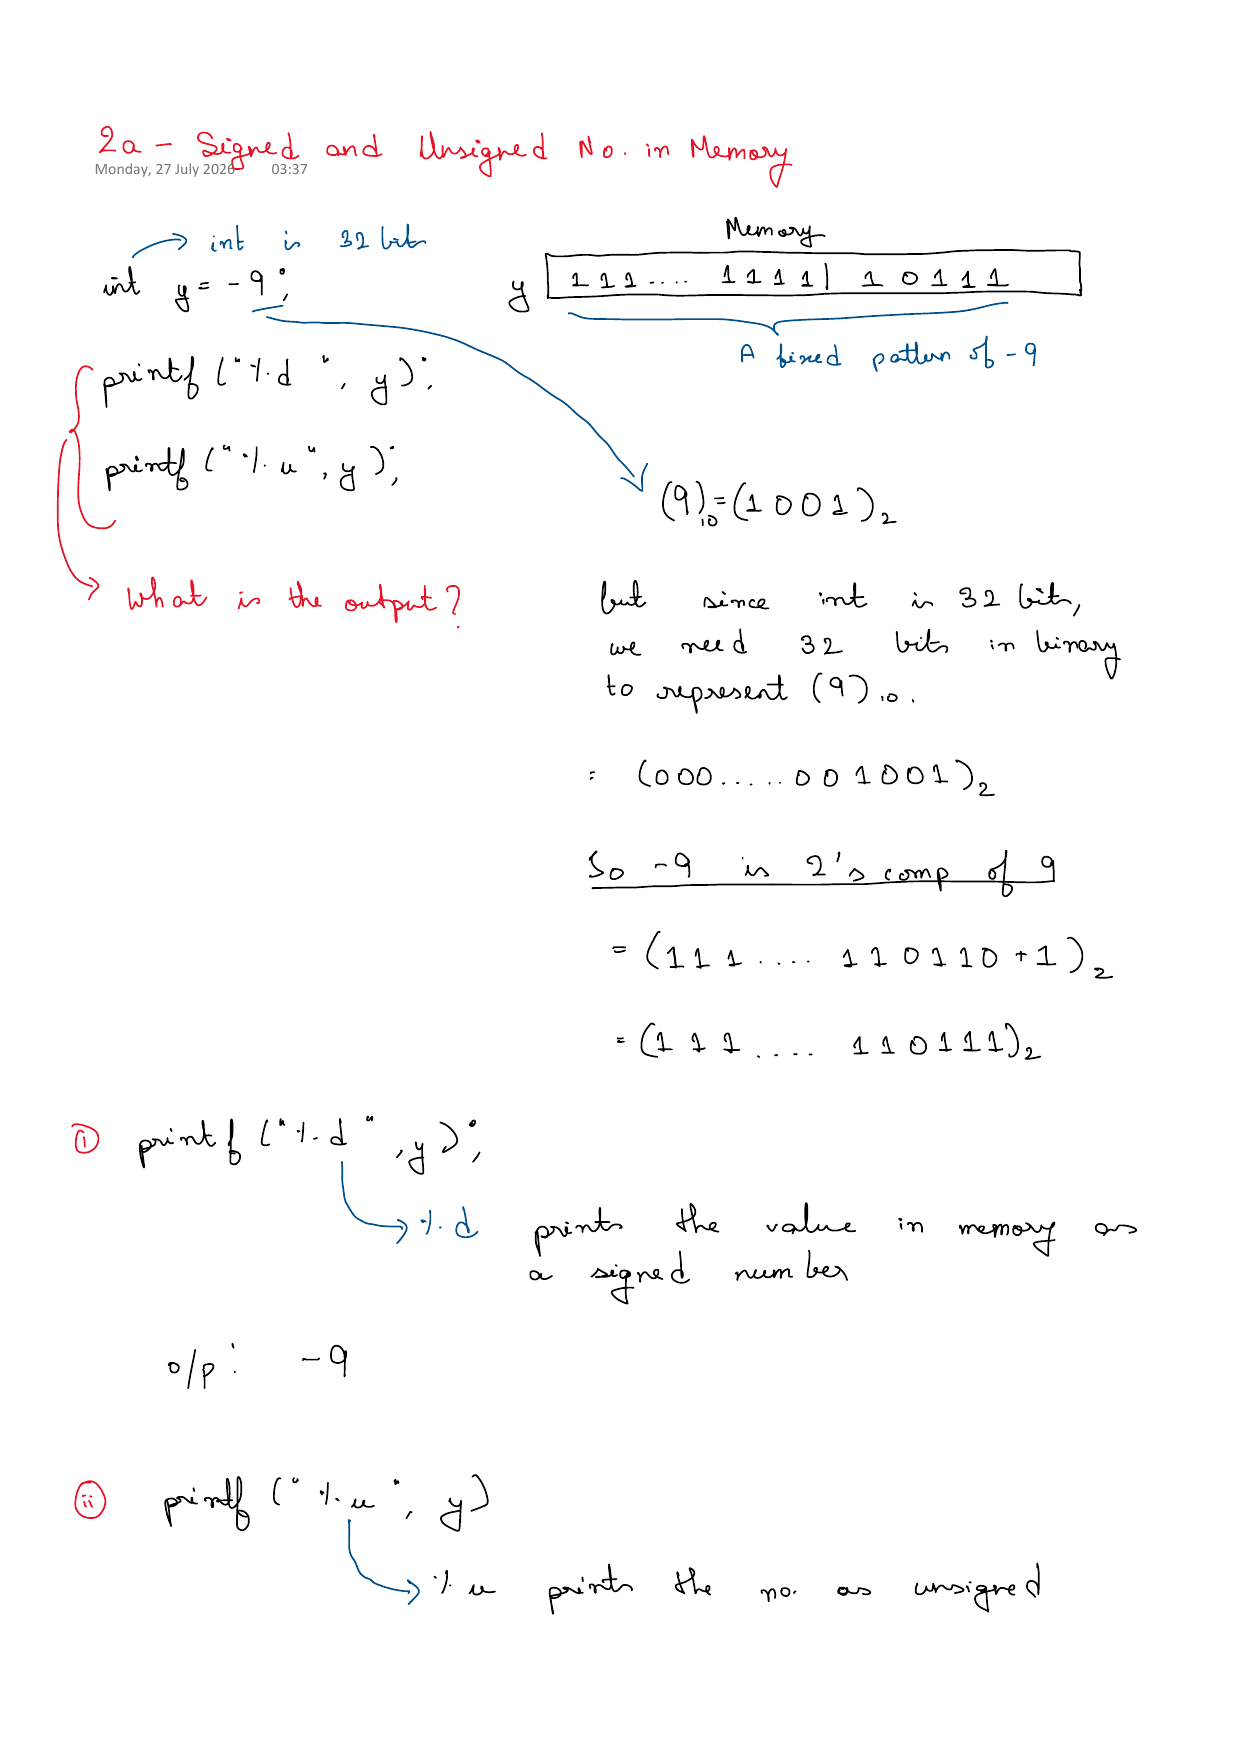 2a - Signed and Unsigned No. in Memory
Monday, 27 July 2026 03:37
int is 32 bits
int y = -9;
Memory
y 111.... 1111| 10111
A fixed pattern of -9
printf ("%d ", y);
printf ("%u", y);
What is the output?
(9)10 = (1001)2
but since int is 32 bits,
we need 32 bits in binary
to represent (9)10.
= (000.....001001)2
So -9 is 2's comp of 9
= (111.... 110110 + 1)2
= (111.... 110111)2
i printf ("%d ", y);
%d prints the value in memory as
a signed number
o/p: -9
ii printf ("%u", y)
%u prints the no. as unsigned